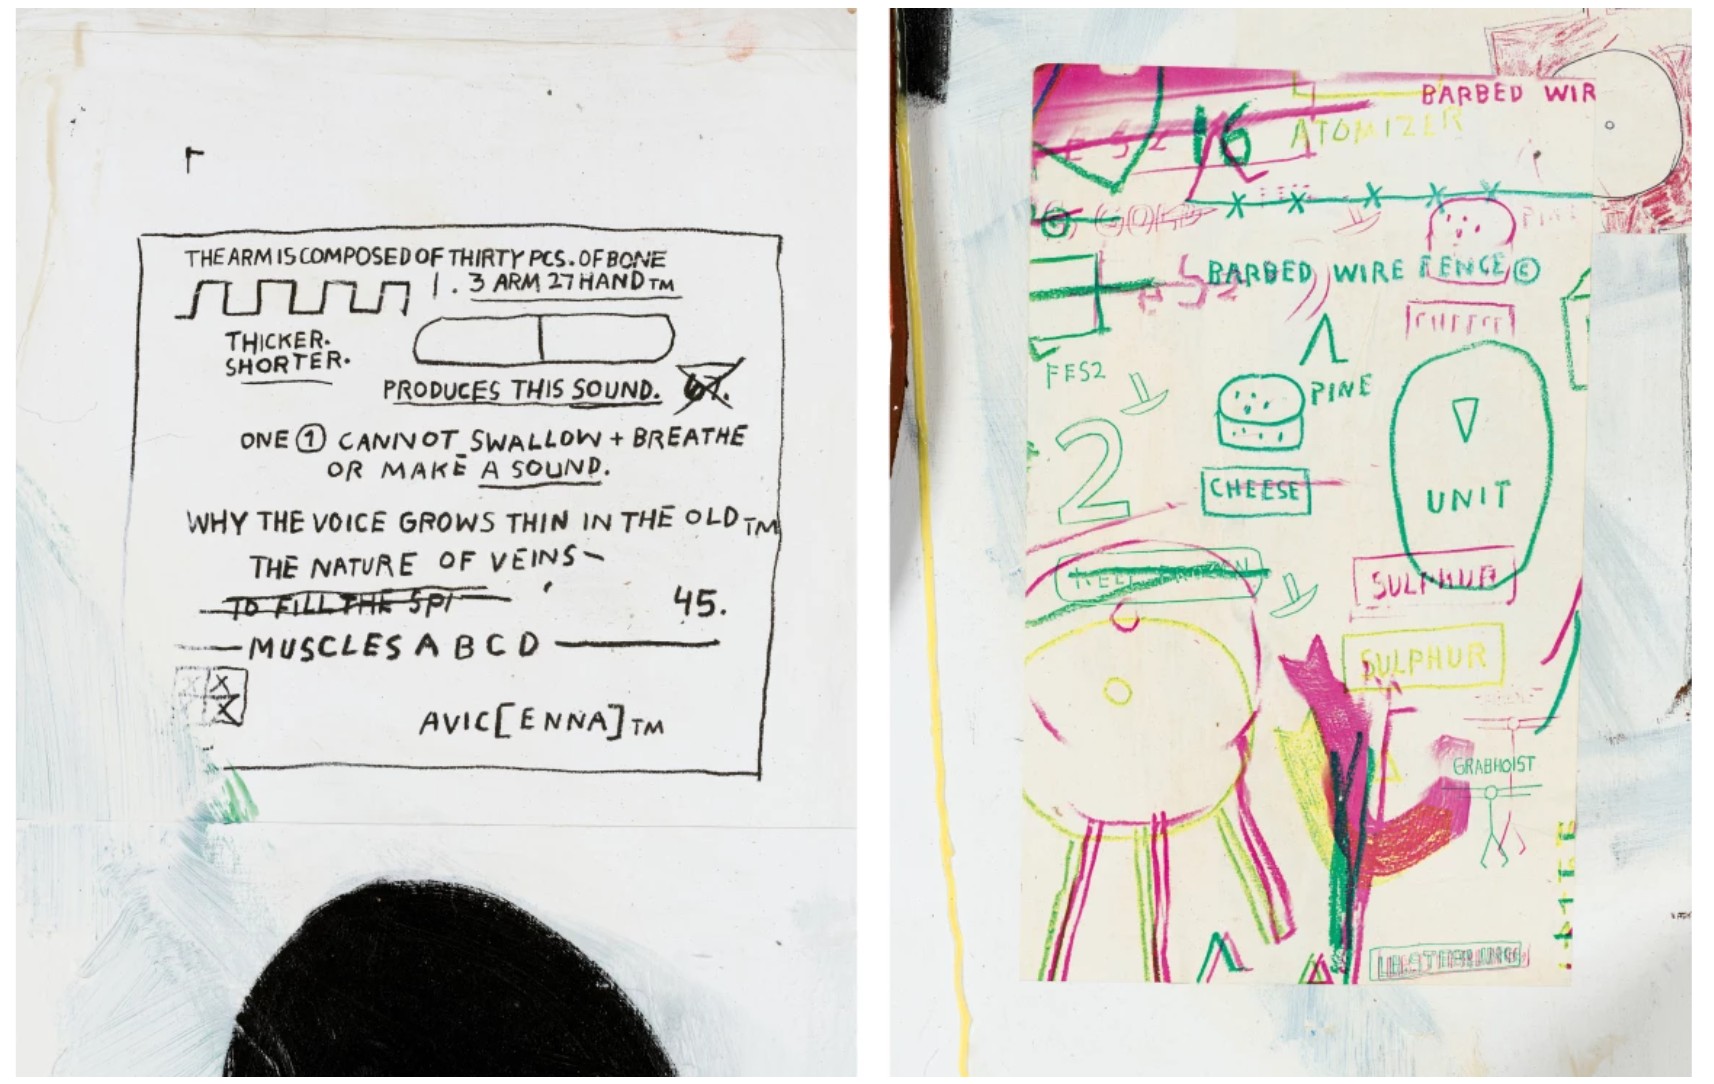 THE ARM IS COMPOSED OF THIRTY PCS. OF BONE
1. 3 ARM 27 HAND TM
THICKER.
SHORTER.
PRODUCES THIS SOUND.
ONE ① CANNOT SWALLOW + BREATHE
OR MAKE A SOUND.
WHY THE VOICE GROWS THIN IN THE OLD TM
THE NATURE OF VEINS
TO FILL THE SPI
45.
MUSCLES A B C D
X X
X X
AVIC[ENNA] TM
BARBED WIR
16
ATOMIZER
X X X X X
BARBED WIRE FENCE ©
FES2
PINE
2
CHEESE
UNIT
SULPHUR
SULPHUR
GRABHOIST